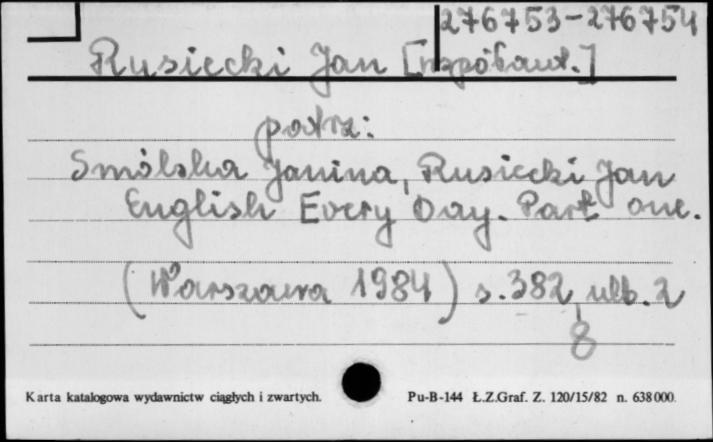 276753-276754
Rusiecki Jan [współaut.]
patrz:
Smólska Janina, Rusiecki Jan
English Every Day. Part one.
(Warszawa 1984) s. 382, nlb. 2
8
Karta katalogowa wydawnictw ciągłych i zwartych. Pu-B-144 Ł.Z.Graf. Z. 120/15/82 n. 638000.